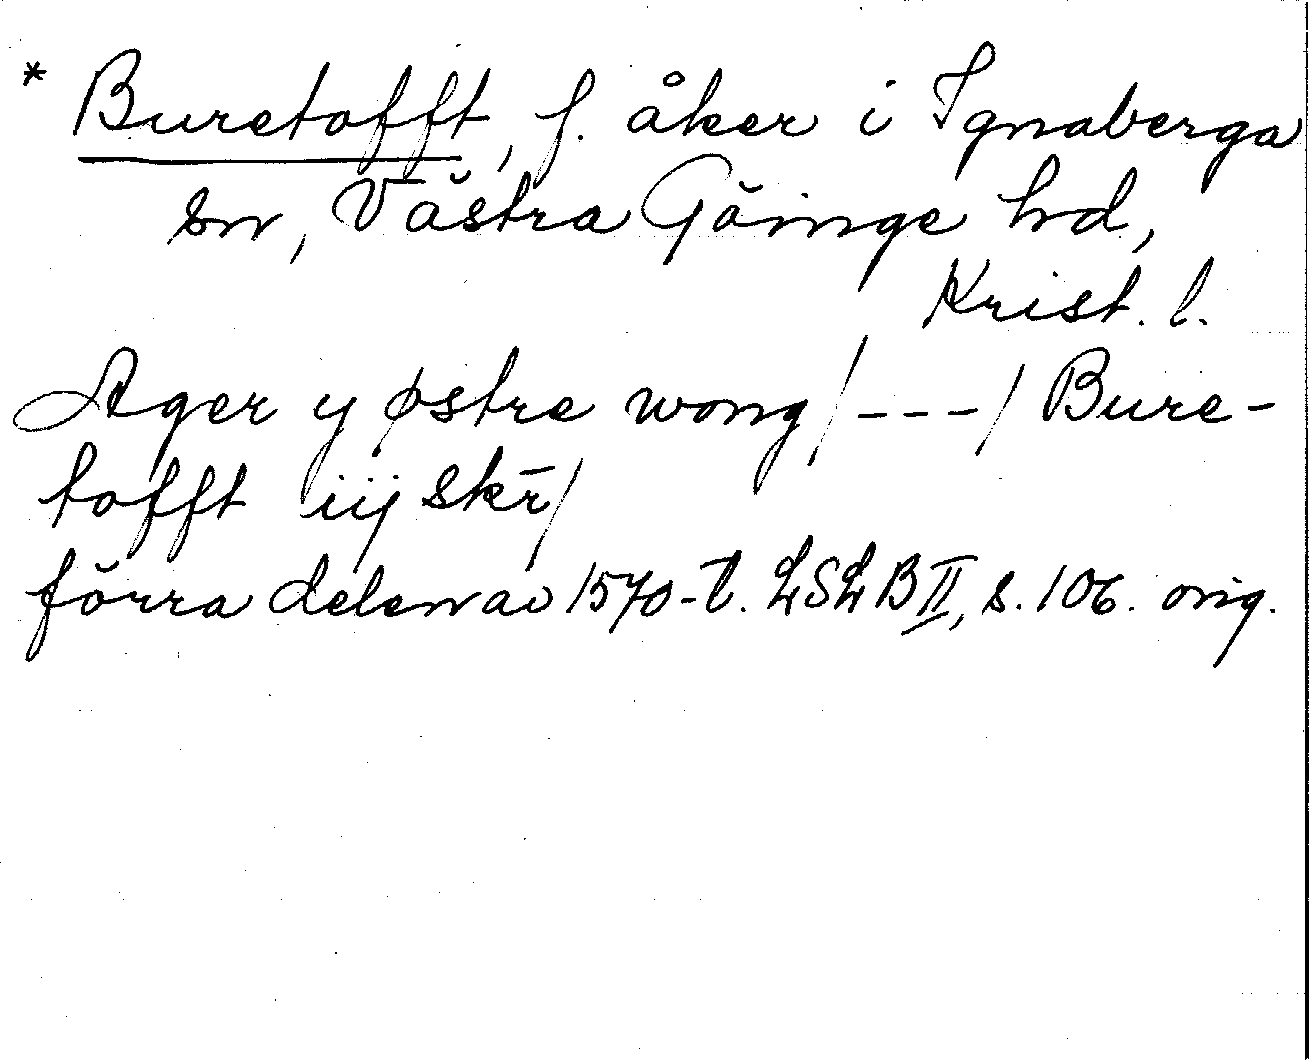 * Buretofft, f. åker i Ignaberga
sn, Västra Göinge hd,
Krist. l.
Ager y østre wong / --- / Bure-
tofft iij skr̄ /
förra delen av 1570-t. LSLB II, s. 106. orig.